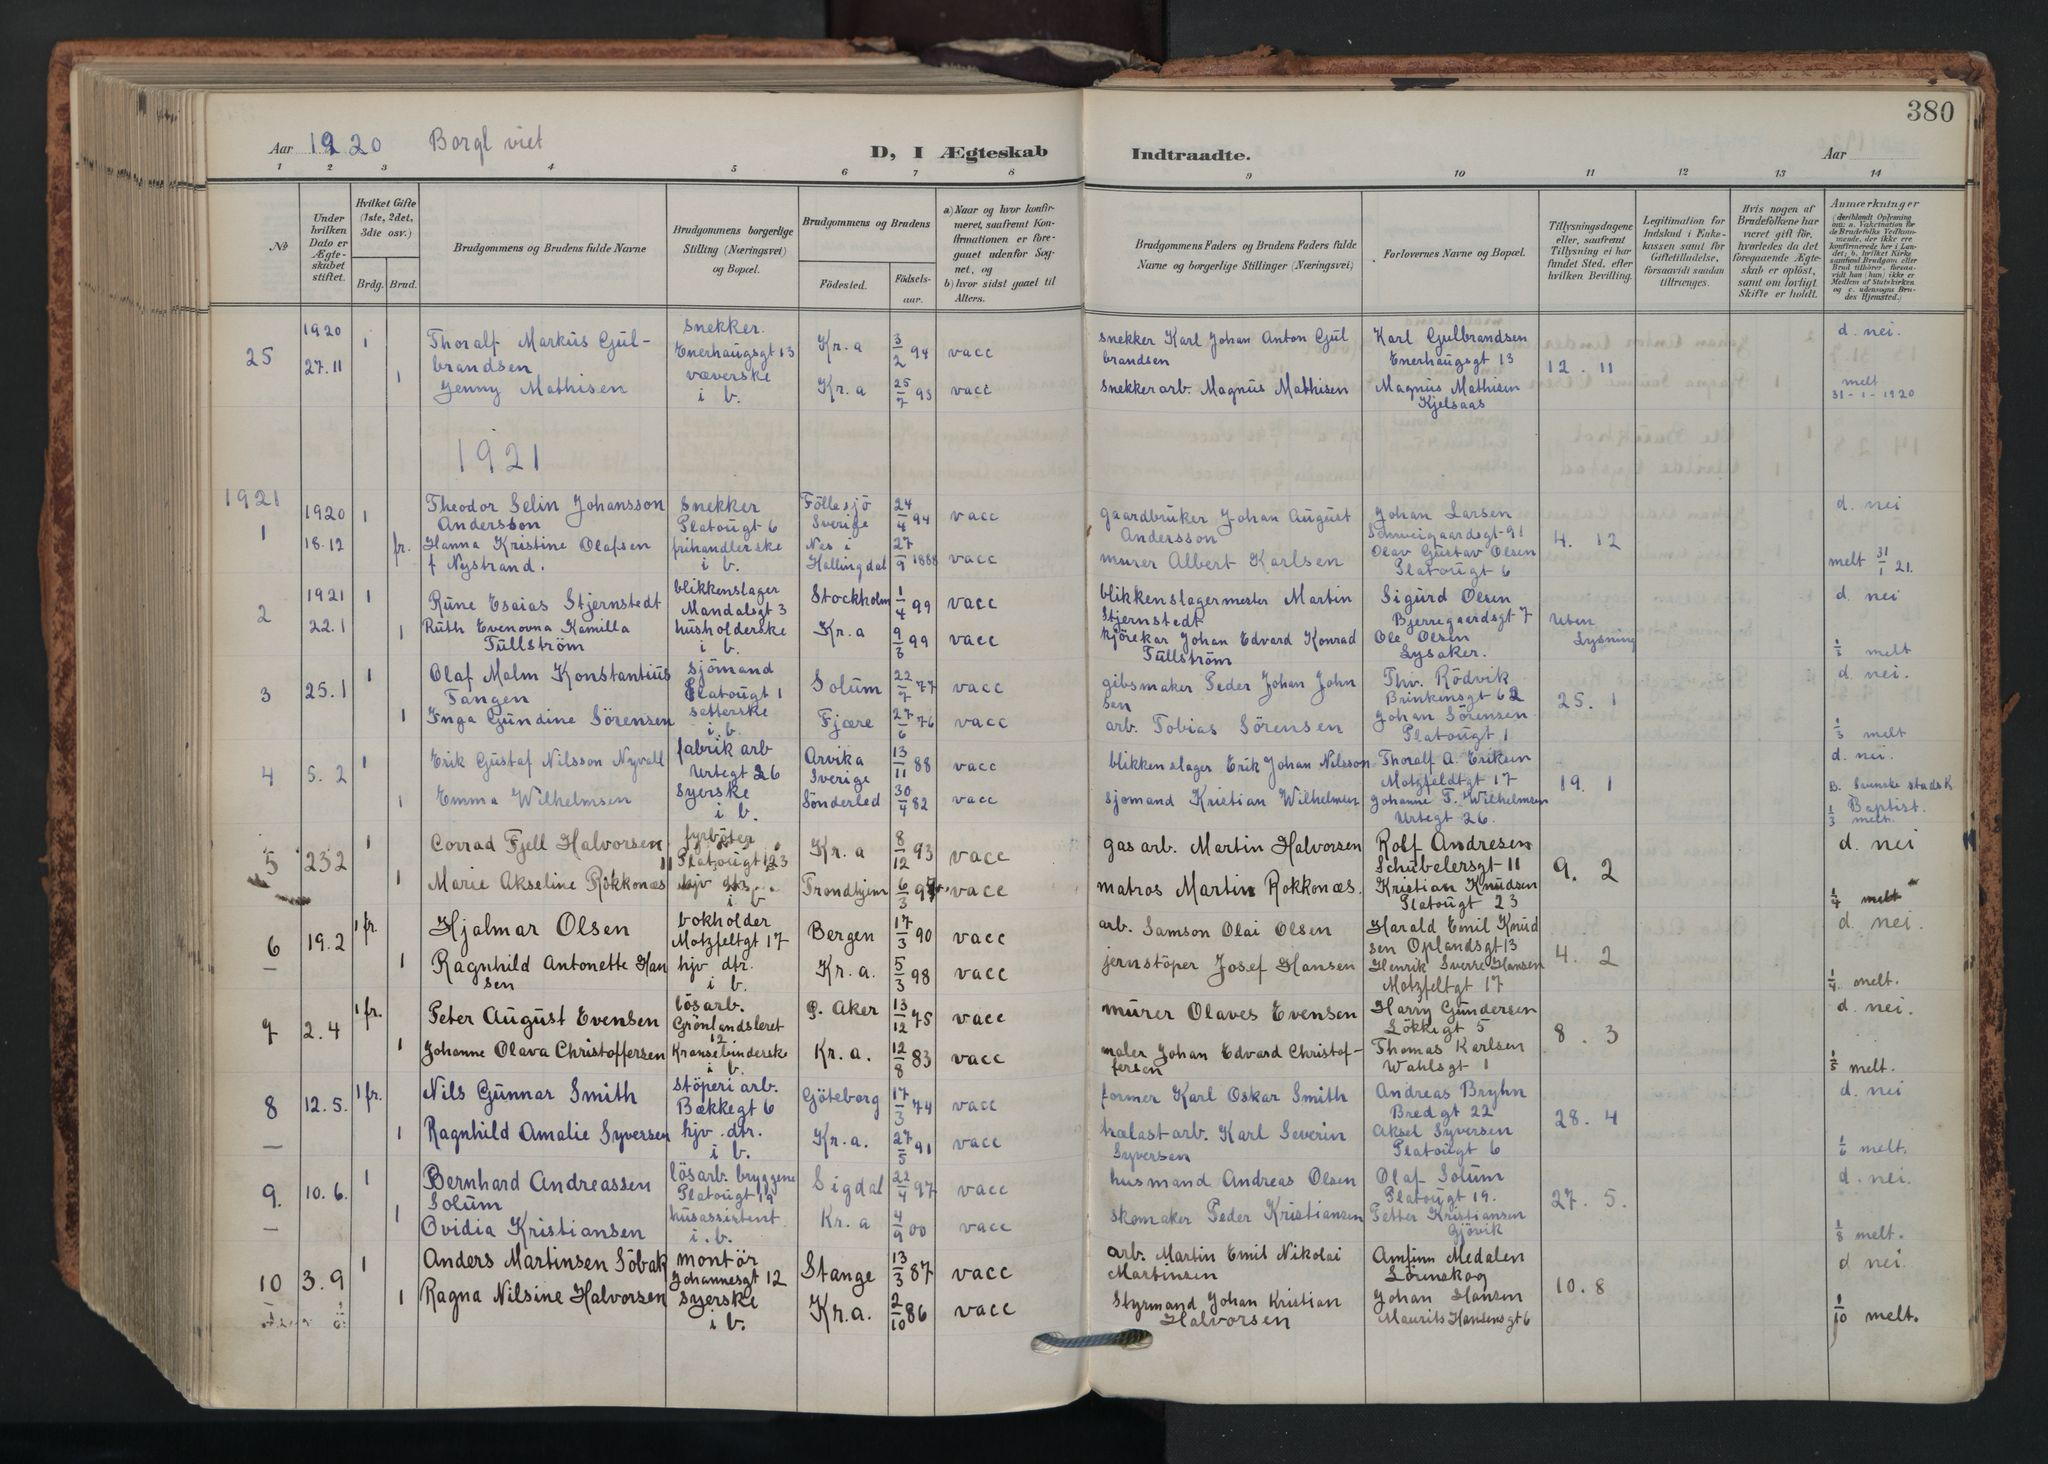 380
Aar 1920 Borgl viet
D, I Ægteskab Indtraadte. Aar
1 2 3 4 5 6 7 8 9 10 11 12 13 14
No
Under hvilken Dato er Ægteskabet stiftet.
Hvilket Gifte (1ste, 2det, 3die osv.)
Brdg. Brud.
Brudgommens og Brudens fulde Navne
Brudgommens borgerlige Stilling (Næringsvei) og Bopæl.
Brudgommens og Brudens
Födested. Födselsaar.
a) Naar og hvor konfirmeret, saafremt Konfirmationen er foregaaet udenfor Sognet, og
b) hvor sidst gaaet til Alters.
Brudgommens Faders og Brudens Faders fulde Navne og borgerlige Stillinger (Næringsvei)
Forlovernes Navne og Bopæl.
Tillysningsdagene eller, saafremt Tillysning ei har fundet Sted, efter hvilken Bevilling.
Legitimation for Indskud i Enkekassen samt for Giftetilladelse, forsaavidt saadan tiltrænges.
Hvis nogen af Brudefolkene har været gift för, hvorledes da det foregaaende Ægteskab er oplöst, samt om lovligt Skifte er holdt.
Anmærkninger
(deriblandt Oplysning om: a. Vakcination for de Brudefolks Vedkommende, der ikke ere konfirmerede her i Landet; b. hvilket Kirkesamfund Brudgom eller Brud tilhörer, forsaavidt han (hun) ikke er Medlem af Statskirken og c. udensogns Brudes Hjemsted.)
25 1920 27.11 1 Thoralf Markus Gulbrandsen snekker. Enerhaugsgt 13 Kr.a 3/2 94 vacc snekker Karl Johan Anton Gulbrandsen Karl Gulbrandsen Enerhaugsgt 13 12. 11 d. nei.
1 Jenny Mathisen væverske i b. Kr.a 25/7 93 vacc snekkerarb. Magnus Mathisen Magnus Mathisen Kjelsaas melt 31-1-1920
1921
1921
1 1920 18.12 1 Theodor Selin Johansson Andersson snekker Platougt 6 Föllesjö Sverige 24/4 94 vacc gaardbruker Johan August Andersson Johan Larsen Schweigaardsgt 91 4. 12 d. nei
fr. Hanna Kristine Olafsen f Nystrand. frihandlerske i b. Nes i Hallingdal 27/9 1888 vacc murer Albert Karlsen Olav Gustav Olsen Platougt 6 melt 31/1 21.
2 1921 22.1 1 Rune Esaias Stjernstedt blikkenslager Mandalsgt 3 Stockholm 1/4 99 vacc blikkenslagermester Martin Stjernstedt Sigurd Olsen Bjerregaardsgt 7 Uten Lysning d. nei
1 Ruth Evenovna Kamilla Fullström husholderske i b. Kr.a 9/3 99 vacc kjörekar Johan Edvard Konrad Fullström Ole Olsen Lysaker. 1/3 melt
3 25.1 1 Olaf Malm Konstantius Tangen sjömand Platougt 1 Solum 22/7 77 vacc gibsmaker Peder Johan Johnsen Thv. Rödvik Brinkensgt 62 25. 1 d. nei.
1 Inga Gundine Sörensen setterske i b. Fjære 27/6 76 vacc arb. Tobias Sörensen Johan Sörensen Platougt 1 1/3 melt
4 5.2 1 Erik Gustaf Nilsson Nyvall fabrikarb Urtegt 26 Arvika Sverige 13/11 88 vacc blikkenslager Erik Johan Nilsson Thoralf A. Eriksen Motzfeldtgt 17 19. 1 d. nei. B. Svenske stadsk
1 Emma Wilhelmsen syerske i b. Sönderled 30/4 82 vacc sjömand Kristian Wilhelmsen Johanne T. Wilhelmsen Urtegt 26. Baptist. 1/3 melt.
5 23.2 1 Conrad Fjell Halvorsen fyrböter Platougt 23 Kr.a 8/12 93 vacc gasarb. Martin Halvorsen Rolf Andresen Schübelersgt 11 9. 2 d. nei
1 Marie Akseline Rokkonæs hjv dtr. i b Trondhjem 6/3 97 vacc matros Martin Rokkonæs. Kristian Knudsen Platougt 23 1/4 melt
6 19.2 1 fr. Hjalmar Olsen bokholder Motzfeltgt 17 Bergen 17/3 90 vacc arb. Samson Olai Olsen Harald Emil Knudsen Oplandsgt 13 4. 2 d. nei.
1 Ragnhild Antonette Hansen hjv. dtr. i b. Kr.a. 5/3 98 vacc jernstöper Josef Hansen Henrik Sverre Hansen Motzfeltgt 17 1/4 melt.
7 2.4 1 fr. Peter August Evensen lösarb. Grönlandsleret 12 Ö. Aker 13/12 75 vacc murer Olaves Evensen Harry Gundersen Lökkegt 5 8. 3 d. nei.
1 Johanne Olava Christoffersen Kransebinderske i b. Kr.a. 12/8 83 vacc maler Johan Edvard Christoffersen Thomas Karlsen Wahlsgt 1 1/5 melt.
8 12.5. 1 fr. Nils Gunnar Smith stöperiarb. Bækkegt 6 Göteborg 17/3 74 vacc former Karl Oskar Smith Andreas Bryhn Bredgt 22 28. 4 d. nei
1 Ragnhild Amalie Syversen hjv. dtr. i b. Kr.a. 27/5 91 vacc trælastarb. Karl Severin Syversen Aksel Syversen Platougt 6 1/6 melt.
9. 10.6. 1 Bernhard Andreassen Solum lösarb. bryggene Platougt 19 Sigdal 22/4 97 vacc husmand Andreas Olsen Olaf Solum Platougt 19. 27. 5. d. nei.
1 Ovidia Kristiansen husassistent i. b. Kr.a 4/9 00 vacc skomaker Peder Kristiansen Petter Kristiansen Gjövik 1/8 melt.
10 3.9 1 Anders Martinsen Söbak montör Johannesgt 12 Stange 13/3 87 vacc arb. Martin Emil Nikolai Martinsen Amfinn Medalen Lörenskog 10. 8 d nei.
1 Ragna Nilsine Halvorsen syerske i b. Kr.a. 2/10 86 vacc Styrmand Johan Kristian Halvorsen Johan Hansen Maurits Hansensgt 6 1/10 melt.